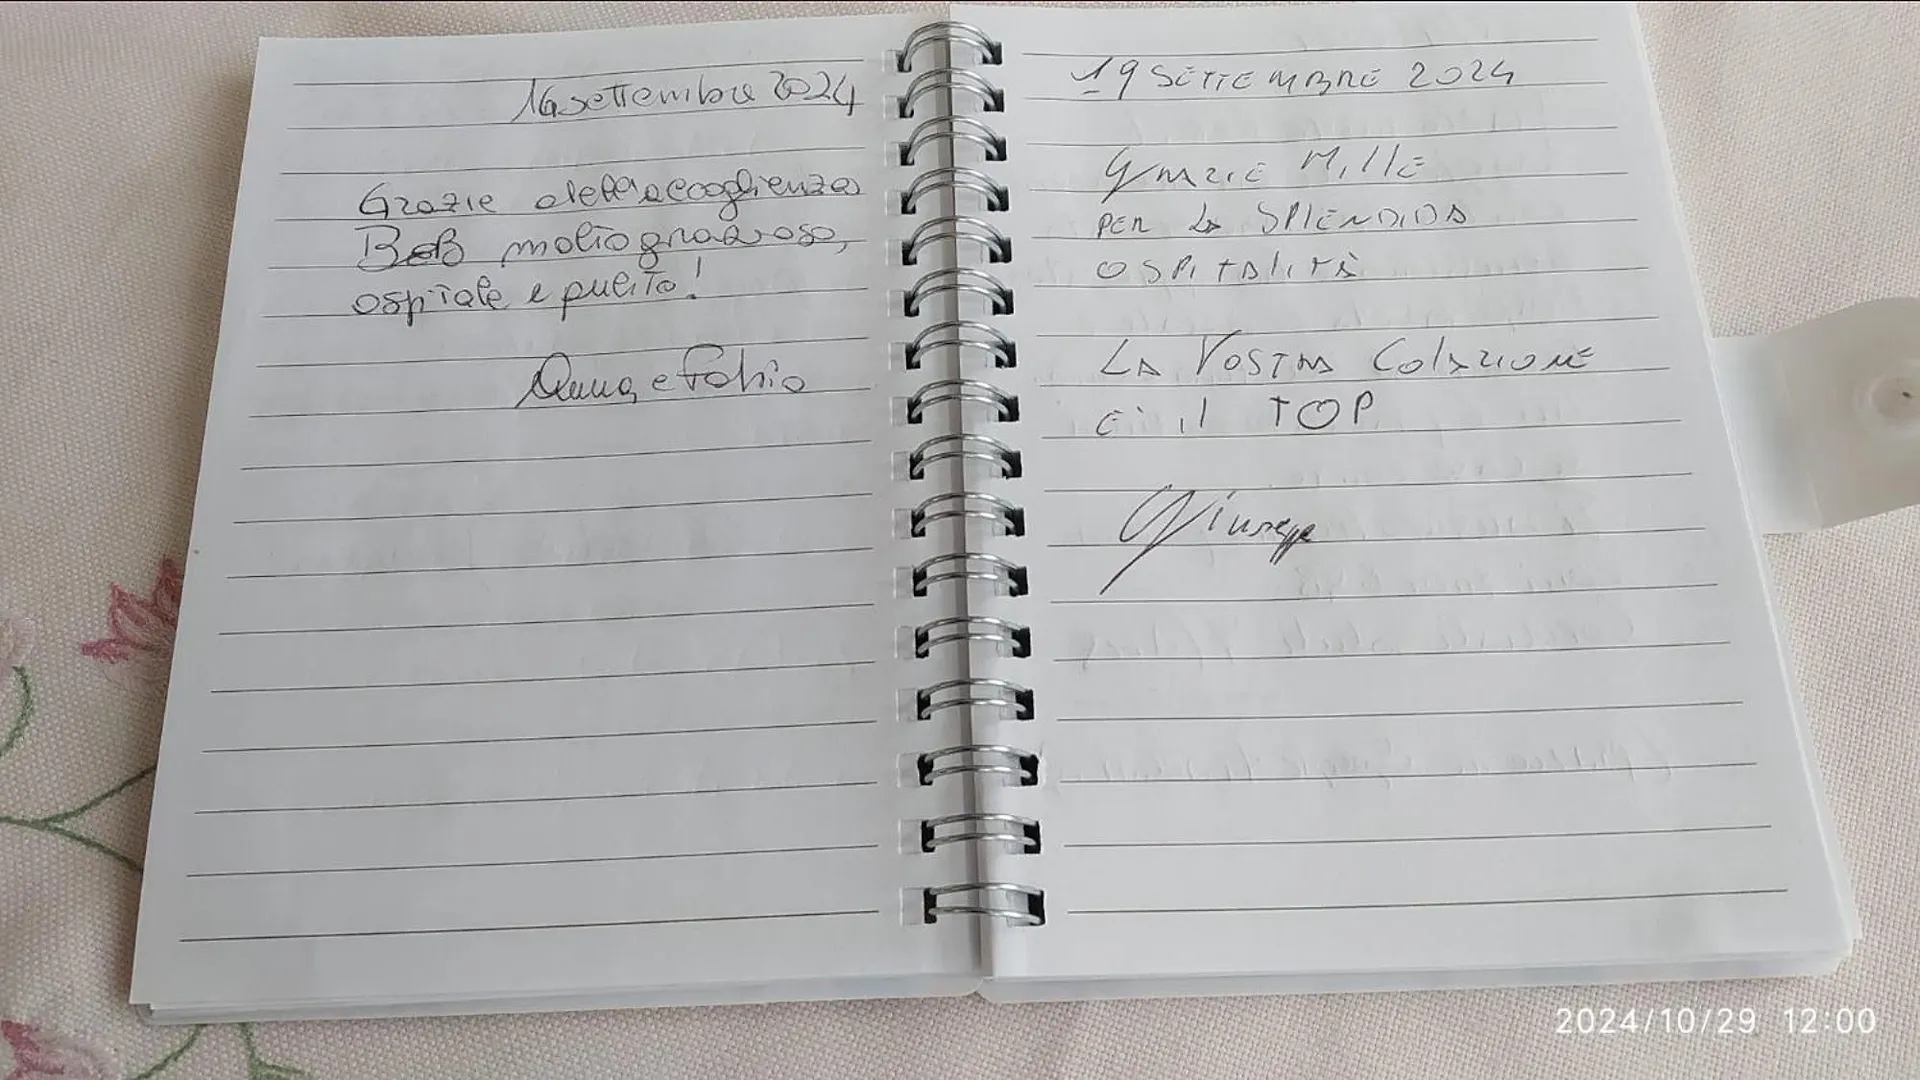 16 settembre 2024
Grazie dell'accoglienza
BeB molto grazioso,
ospitale e pulito!
Anna e Fabio
19 SETTEMBRE 2024
GRAZIE MILLE
PER LA SPLENDIDA
OSPITALITÀ
LA VOSTRA COLAZIONE
E' il TOP
Giuseppe
2024/10/29 12:00